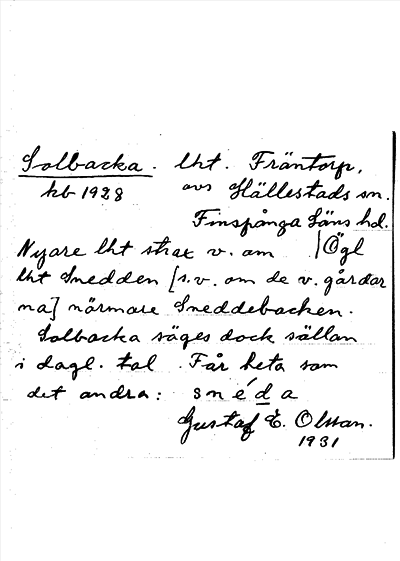 Solbacka. lht. Fräntorp,
kb 1928 avs Hällestads sn.
Finspånga läns hd.
Nyare lht strax v. om | Ögl
lht Snedden [s.v. om de v. gårdar
na] närmare Sneddebacken.
Solbacka säges dock sällan
i dagl. tal. Får heta som
det andra: snéda
Gustaf E. Olsson.
1931